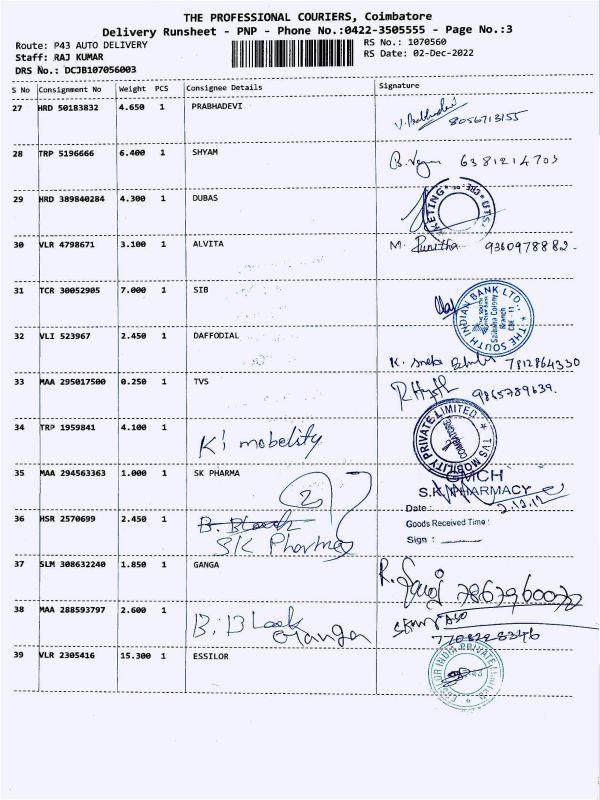 THE PROFESSIONAL COURIERS, Coimbatore
Delivery Runsheet - PNP - Phone No.:0422-3505555 - Page No.:3
Route: P43 AUTO DELIVERY
RS No.: 1070560
Staff: RAJ KUMAR
RS Date: 02-Dec-2022
DRS No.: DCJB107056003
S No Consignment No Weight PCS Consignee Details Signature
27 HRD 50183832 4.650 1 PRABHADEVI
8056713155
28 TRP 5196666 6.400 1 SHYAM
6381214703
29 HRD 389840284 4.300 1 DUBAS
30 VLR 4798671 3.100 1 ALVITA M. Punitha 9360978882-
31 TCR 30052905 7.000 1 SIB
THE SOUTH INDIAN BANK LTD.,
Saibaba Colony
Branch
CBE - 11
32 VLI 523967 2.450 1 DAFFODIAL
7812864330
33 MAA 295017500 0.250 1 TVS
9865789639.
34 TRP 1959841 4.100 1
K i mobelity
TVS MOBILITY PRIVATE LIMITED
COIMBATORE
35 MAA 294563363 1.000 1 SK PHARMA
GMCH
S.K. PHARMACY
Date:
2.12.12
36 HSR 2570699 2.450 1
B. Block
SK Pharma
Goods Received Time :
Sign :
37 SLM 308632240 1.850 1 GANGA
7867960072
38 MAA 288593797 2.600 1
B. Block
Ganga
7708228346
39 VLR 2305416 15.300 1 ESSILOR
ESSILOR INDIA PRIVATE Limited